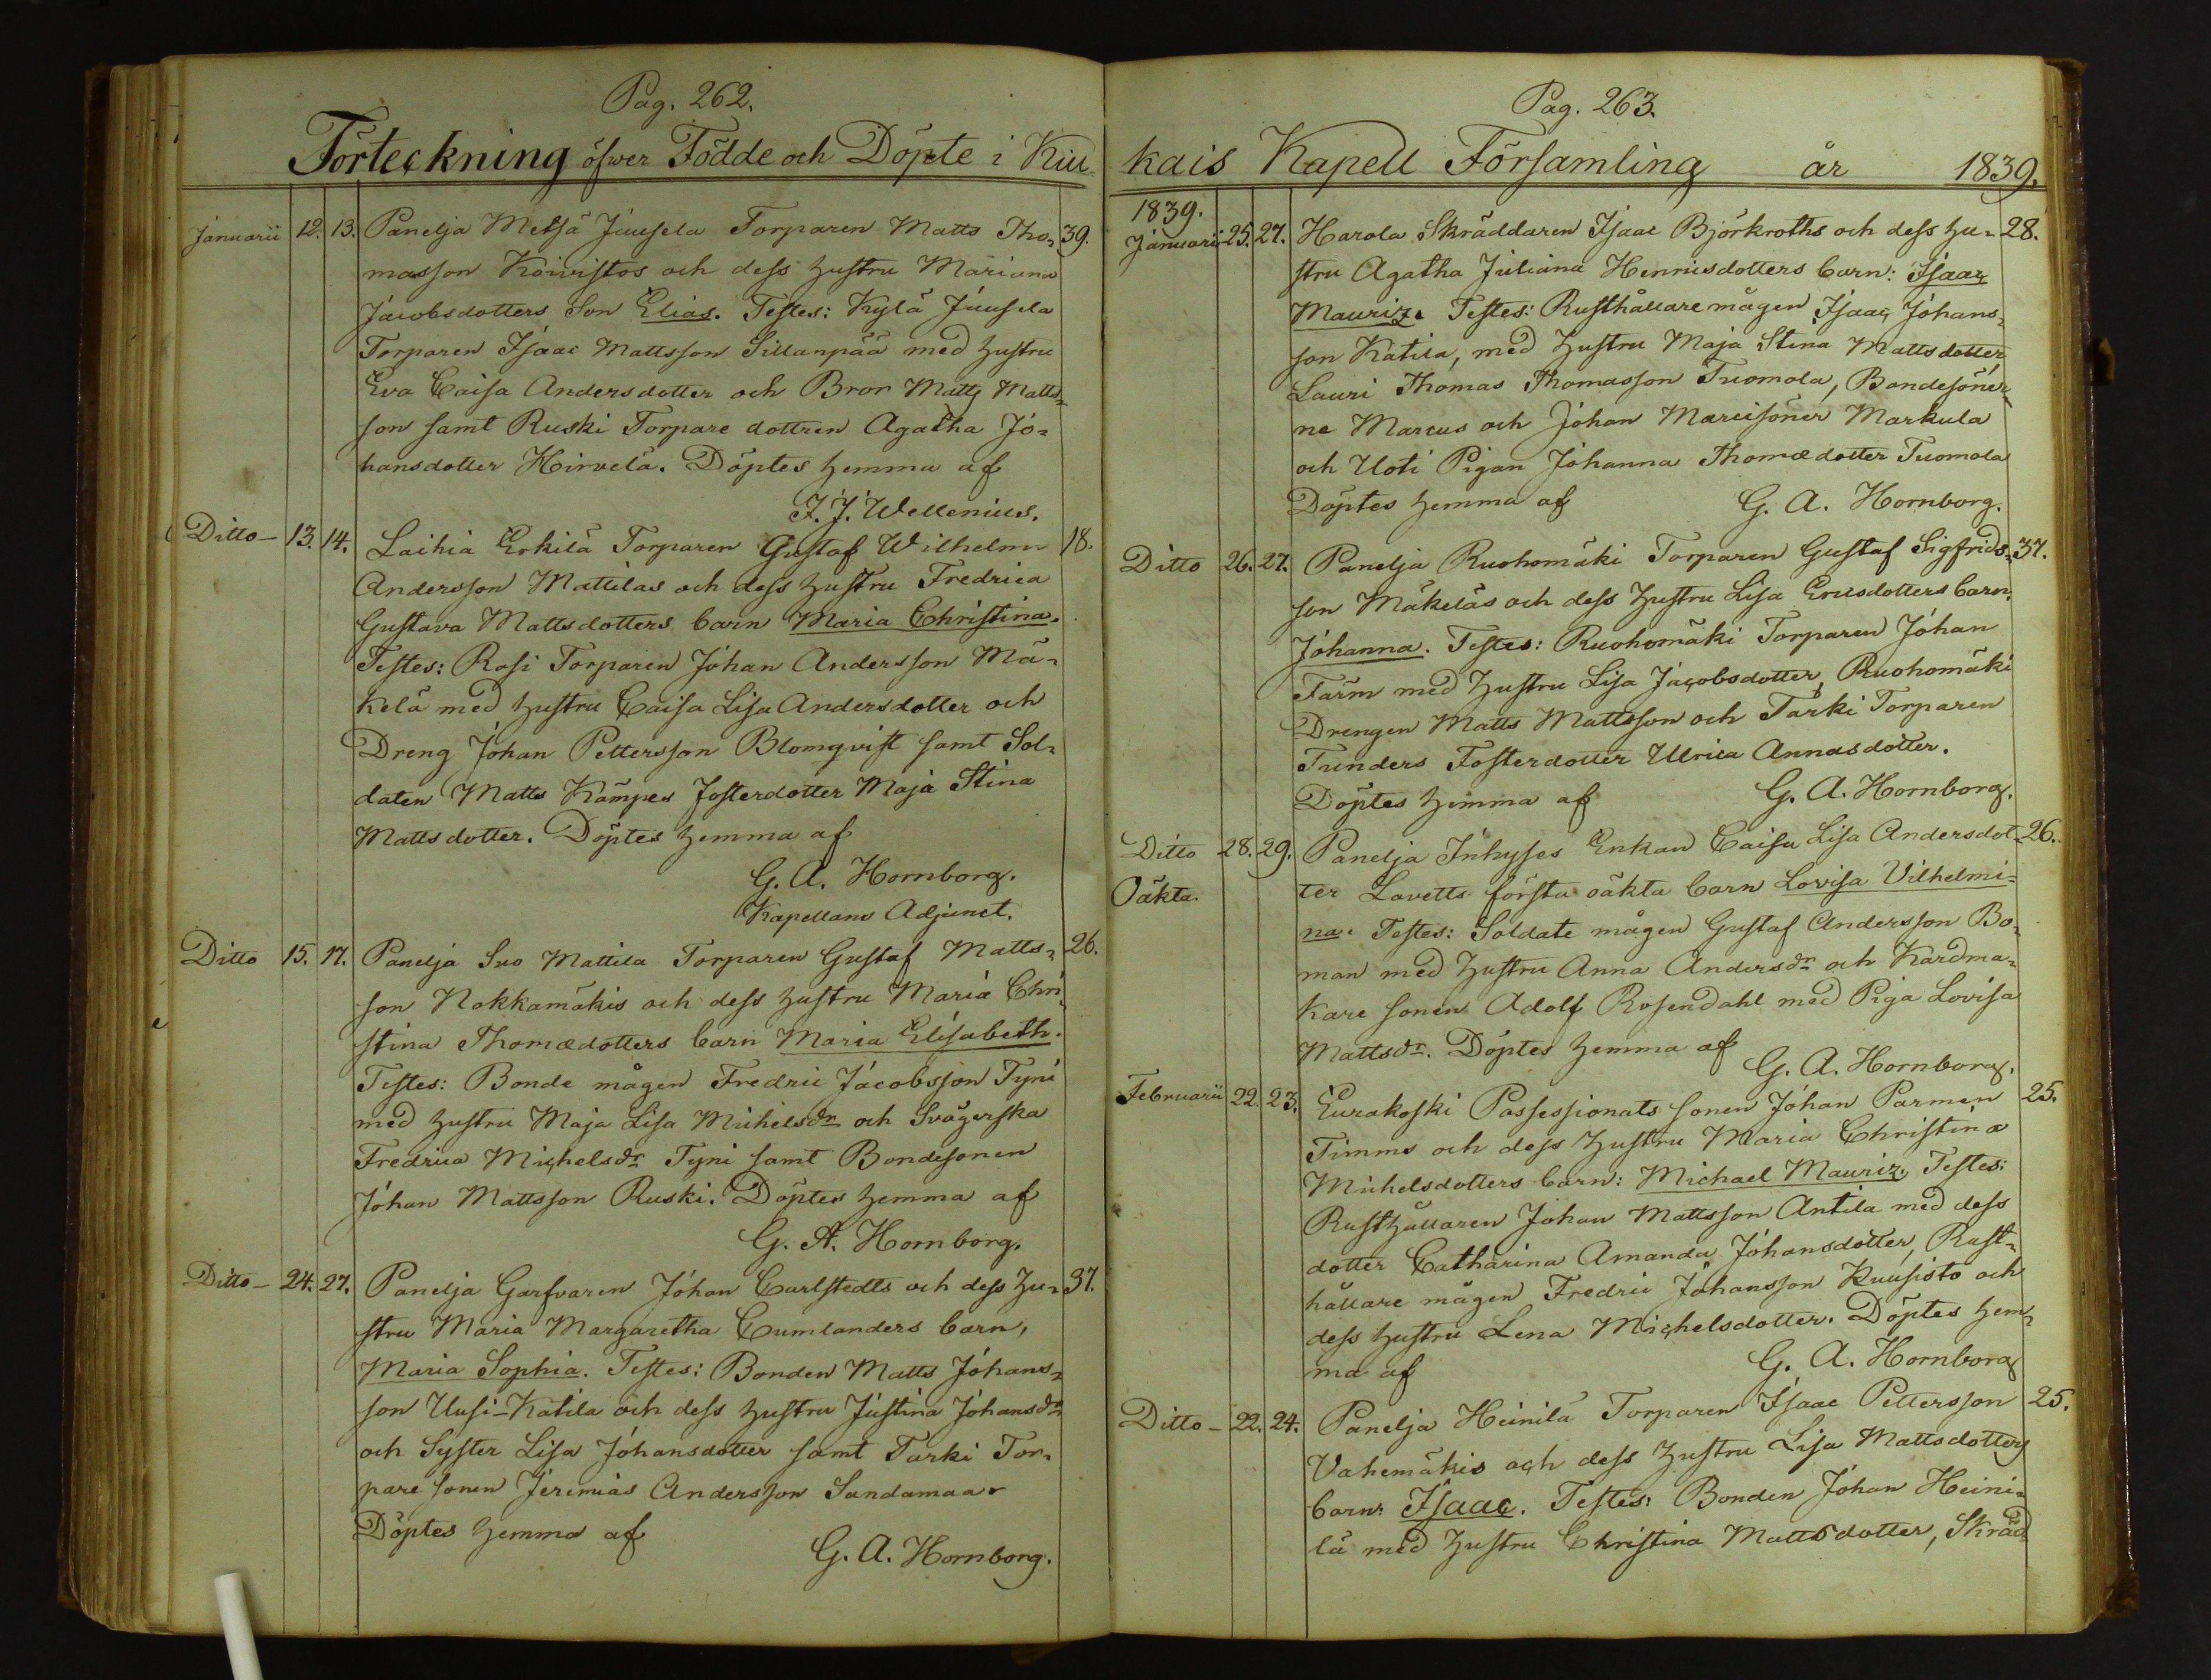 Pag. 262.
Förteckning öfwer Födde och Döpte i Kiu
Januarii 12. 13. Panelja Metsä Juusela Torparen Matts Tho- 39.
masson Koivistos och dess hustru Mariana
Jacobsdotters Son Elias. Testes: Kylä Juusela
Torparen Isaac Mattsson Sillanpää med hustru
Eva Caisa Andersdotter och Bror Matts Matts-
son samt Ruski Torpare dottren Agatha Jo-
hansdotter Hirvelä. Döptes hemma af
F. J. Wellenius.
Ditto - 13. 14. Laihia Erkilä Torparen Gustaf Wilhelm 18.
Andersson Mattilas och dess hustru Fredrica
Gustava Mattsdotters barn Maria Christina.
Testes: Rosi Torparen Johan Andersson Mä-
kelä med hustru Caisa Lisa Andersdotter och
Dreng Johan Pettersson Blomqvist samt Sol-
daten Matts Kämpes fosterdotter Maja Stina
Mattsdotter. Döptes hemma af
G. A. Hornborg.
Kapellans Adjunct.
Ditto 15. 17. Panelja Suo Mattila Torparen Gustaf Matts- 26.
son Nokkamäkis och dess hustru Maria Chri-
stina Thomædotters barn Maria Elisabeth.
Testes: Bonde mågen Fredric Jacobsson Tyni
med hustru Maja Lisa Michelsdr och Svägerska
Fredrica Michelsdr Tyni samt Bondesonen
Johan Mattsson Ruski. Döptes hemma af
G. A. Hornborg.
Ditto - 24. 27. Panelja Garfvaren Johan Carlstedts och dess hu- 37.
stru Maria Margaretha Cumlanders barn,
Maria Sophia. Testes: Bonden Matts Johans-
son Uusi-Katila och dess hustru Justina Johansdr
och Syster Lisa Johansdotter samt Turki Tor-
pare sonen Jeremias Andersson Sandamaa
Döptes hemma af
G. A. Hornborg.
Pag. 263.
kais Kapell Församling år 1839.
1839.
Januarii 25. 27. Harola Skräddaren Isaac Björkroths och dess hu- 28.
stru Agatha Juliana Henricsdotters barn: Isaac
Mauriz. Testes: Rusthållare mågen Isaac Johans-
son Katila, med hustru Maja Stina Mattsdotter
Lauri Thomas Thomasson Tuomola, Bondesöner-
ne Marcus och Johan Marcisöner Markula
och Uoti Pigan Johanna Thomædotter Tuomola
Döptes hemma af G. A. Hornborg.
Ditto 26. 27. Panelja Ruohomäki Torparen Gustaf Sigfrids- 37.
son Mäkeläs och dess hustru Lisa Ericsdotters barn,
Johanna. Testes: Ruohomäki Torparen Johan
Färm med hustru Lisa Jacobsdotter, Ruohomäki
Drengen Matts Mattsson och Turki Torparen
Tunders Fosterdotter Ulrica Annasdotter.
Döptes hemma af G. A. Hornborg.
Ditto 28. 29. Panelja Inhyses Enkan Caisa Lisa Andersdot- 26.
Oäkta. ter Lavetts första oäkta barn Lovisa Vilhelmi-
na. Testes: Soldate mågen Gustaf Andersson Bo-
man med hustru Anna Andersdr och Kardma-
kare sonen Adolf Rosendahl med Piga Lovisa
Mattsdr. Döptes hemma af
G. A. Hornborg.
Februarii 22. 23. Eurakoski Possessionats sonen Johan Parmen 25.
Timms och dess hustru Maria Christina
Michelsdotters barn: Michael Mauriz, Testes:
Rusthållaren Johan Mattsson Antila med dess
dotter Catharina Amanda Johansdotter, Rust-
hållare mågen Fredric Johansson Kuusisto och
dess hustru Lena Michelsdotter. Döptes hem-
ma af G. A. Hornborg
Ditto - 22. 24. Panelja Heinilä Torparen Isaac Pettersson 25.
Vahemäkis och dess hustru Lisa Mattsdotters
barn: Isaac. Testes: Bonden Johan Heini-
lä med hustru Christina Mattsdotter, Skräd-